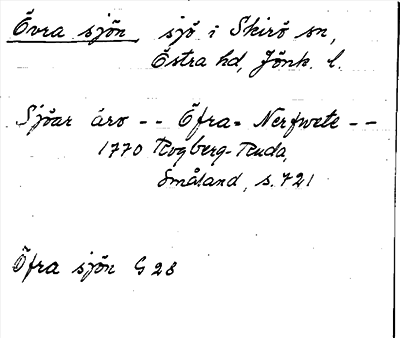 Övra sjön sjö i Skirö sn,
Östra hd, Jönk. l.
Sjöar äro -- Öfra= Nerfwete --
1770 Rogberg-Ruda,
Småland, s. 721
Öfra sjön G 28